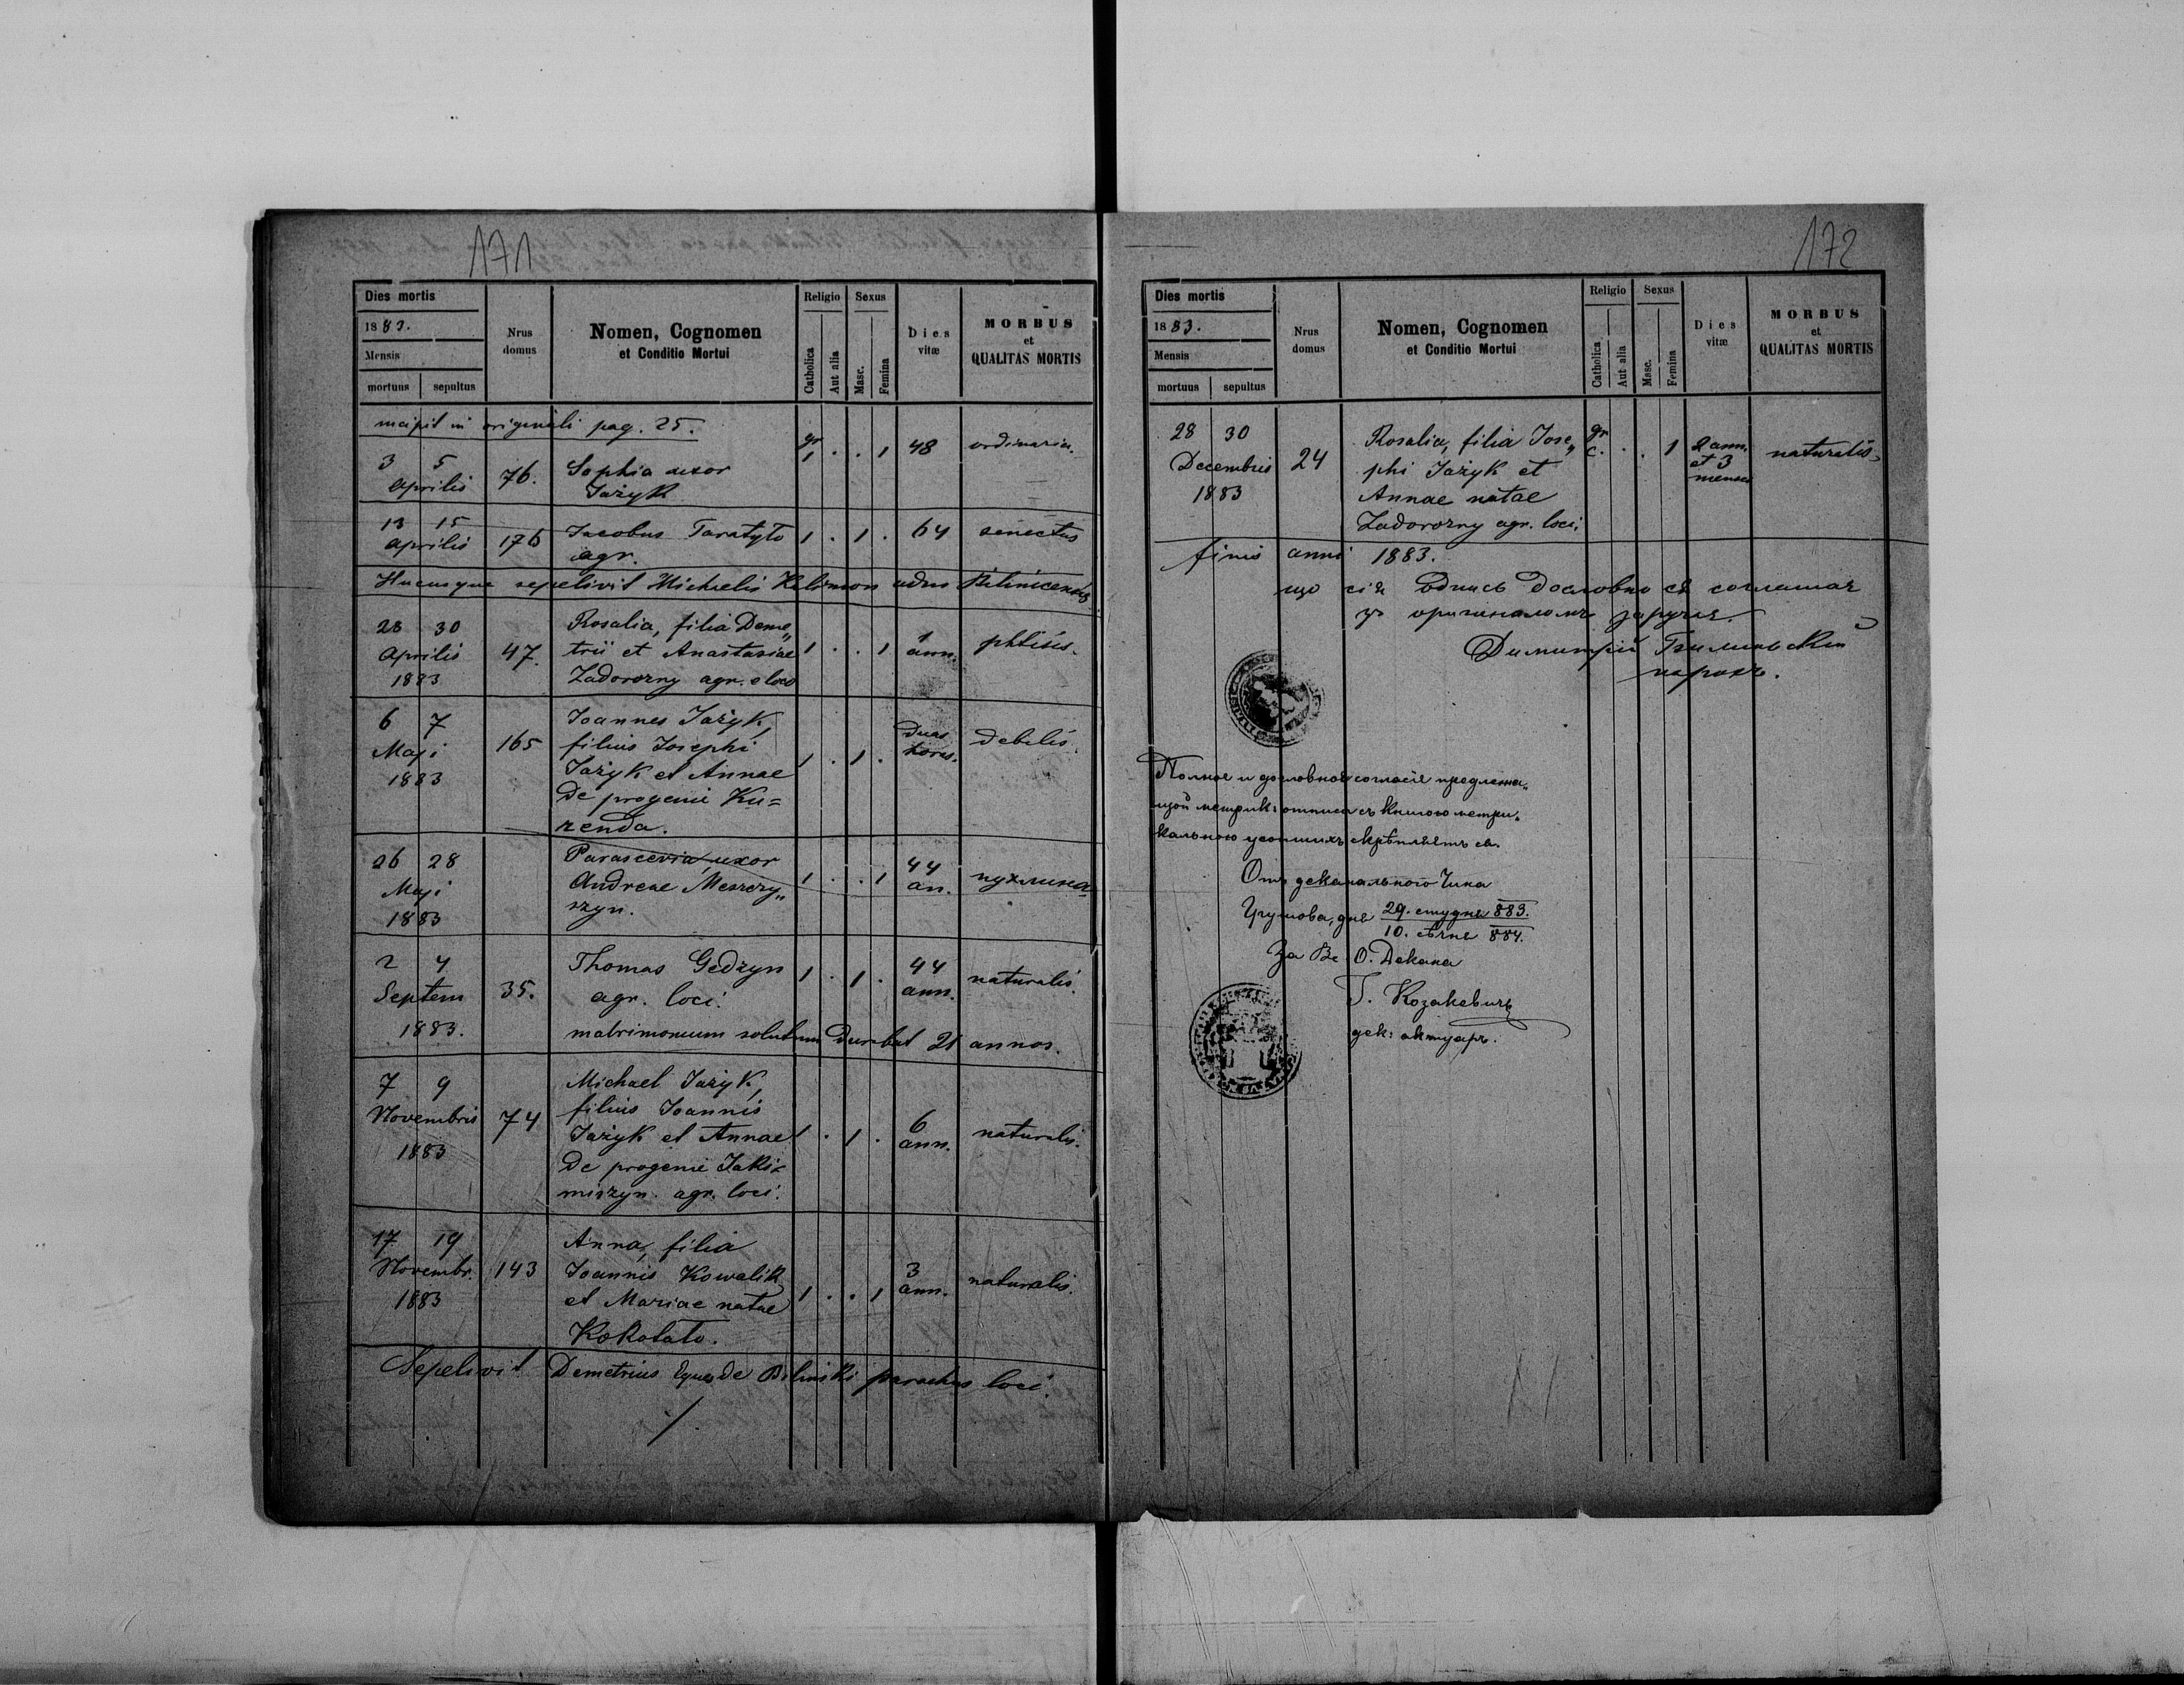 171
Dies mortis
1883.
Mensis
mortuus sepultus
Nrus domus
Nomen, Cognomen
et Conditio Mortui
Religio
Catholica
Aut alia
Sexus
Masc.
Femina
Dies vitæ
MORBUS
et
QUALITAS MORTIS
incipit in originali pag. 25.
3 5 Aprilis 76. Sophia uxor gr 1 . . 1 48 ordinaria.
Jażyk
13 15 Aprilis 176 Jacobus Taratyło 1 . 1 . 64 senectus
agr.
Hucusque sepelivit Michaelis adms Bilinicensis
28 30 Rosalia, filia Deme„
Aprilis 47. trii et Anastasiae 1 . . 1 1 ann. phtisis.
1883 Zadorozny agr. e loco
6 7 Joannes Jażyk,
Maji 165 filius Josephi 1 . 1 . Duas horas. debilis.
1883 Jażyk et Annae
de progenie Ku=
renda.
26 28 Parascevia, uxor
Maji Andreae Meszczy„ 1 . . 1 44 an. пухлина
1883 szyn.
2 4 Thomas Gedzyn 1 . 1 . 44 ann. naturalis.
Septem 35. agr. loci.
1883. matrimonium solutum durabat 21 annos.
7 9 Michael Jażyk,
Novembris 74 filius Joannis
1883 Jażyk et Annae 1 . 1 . 6 ann. naturalis.
de progenie Jaki=
miszyn. agr. loci.
17 19 Anna, filia
Novembr. 143 Joannis Kowalik 3 ann. naturalis.
1883 et Mariae natae 1 . . 1
Kokotało.
Sepelivit Demetrius Eques de Bilinski parochus loci.
./.
172
Dies mortis
1883.
Mensis
mortuus sepultus
Nrus domus
Nomen, Cognomen
et Conditio Mortui
Religio
Catholica
Aut alia
Sexus
Masc.
Femina
Dies vitæ
MORBUS
et
QUALITAS MORTIS
28 30 Rosalia, filia Jose„ gr c. . . 1 2 ann. et 3 menses naturalis
Decembris 24 phi Jażyk et
1883 Annae natae
Zadorozny agr. loci.
finis anni 1883.
що сія Одпись дословно ся соглашає
зъ оригиналомъ заручає.
Димитрій Билиньскій
парохъ.
Полное и дословное согласіе предлежа„
щой метрик: отписи съ книгою метри„
кальною усопшихъ скрѣпляетъ ся.
Отъ деканального Чина
Грушова, дня 29. студня 883.
10. сѣчня 884.
За Вс. О. Декана
Г. Козакевичъ
дек: актуаръ.